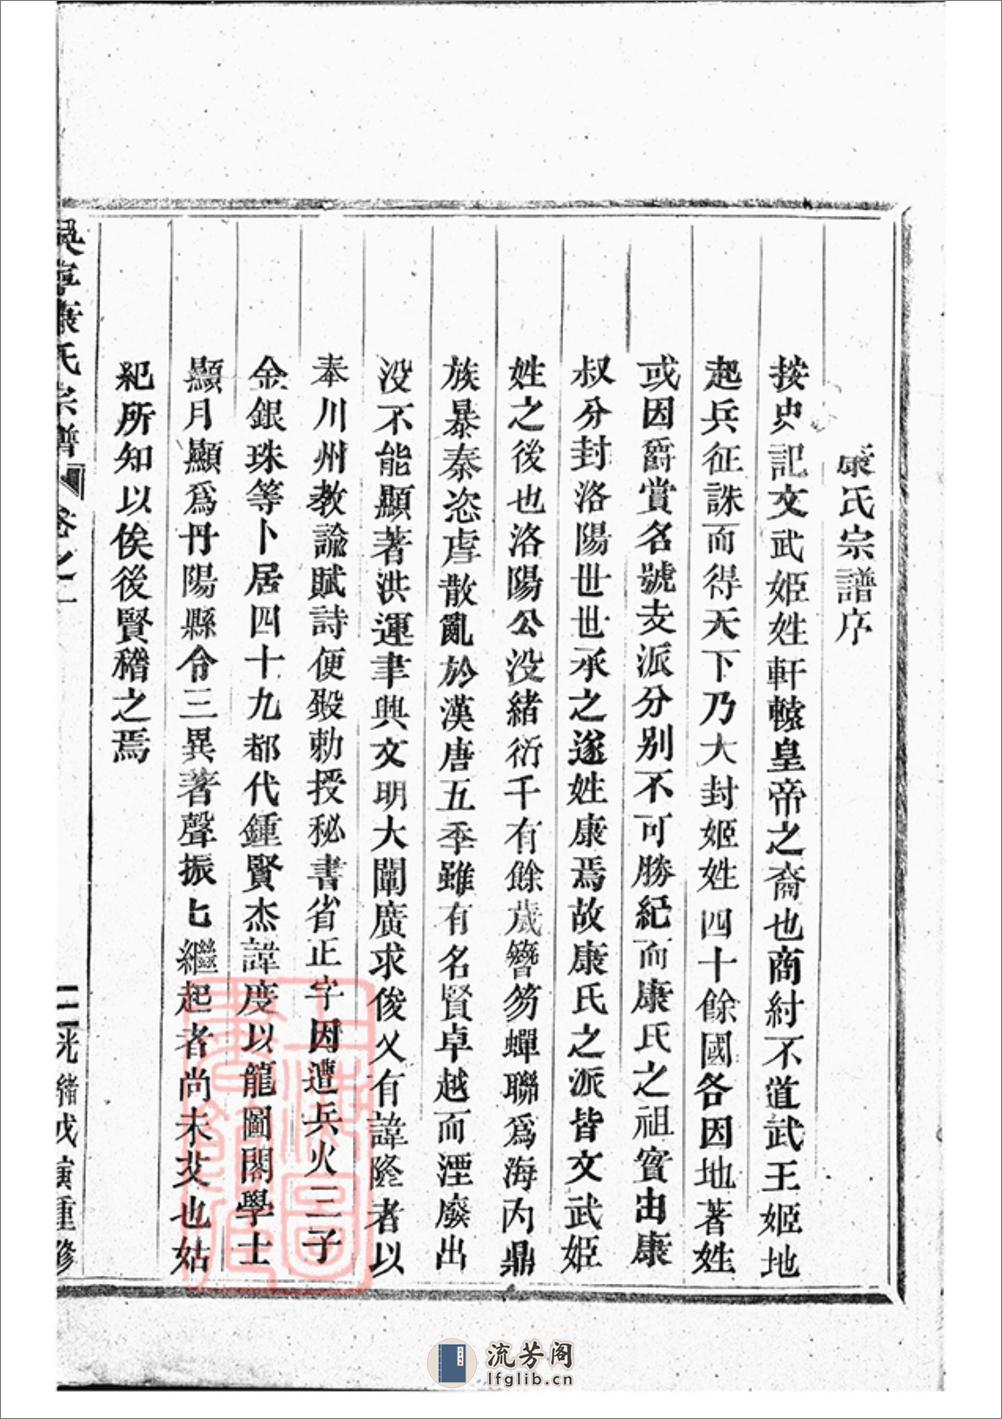 康氏宗譜序
按史記文武姬姓軒轅皇帝之裔也商紂不道武王姬地
起兵征誅而得天下乃大封姬姓四十餘國各因地著姓
或因爵賞名號支派分别不可勝紀而康氏之祖實由康
叔分封洛陽世世承之遂姓康焉故康氏之派皆文武姬
姓之後也洛陽公没緒衍千有餘歲簪笏蟬聯爲海内鼎
族暴秦恣虐散亂於漢唐五季雖有名賢卓越而湮廢出
没不能顯著洪運聿興文明大闡廣求俊乂有諱隆者以
奉川州教諭賦詩便殿勅授秘書省正字因遭兵火三子
金銀珠等卜居四十九都代鍾賢杰諱度以龍圖閣學士
顯月顯爲丹陽縣令三異著聲振匕繼起者尚未艾也姑
紀所知以俟後賢稽之焉
吳寧康氏宗譜
卷之一
二
光緒戊寅重修
流芳阁
lfglib.cn